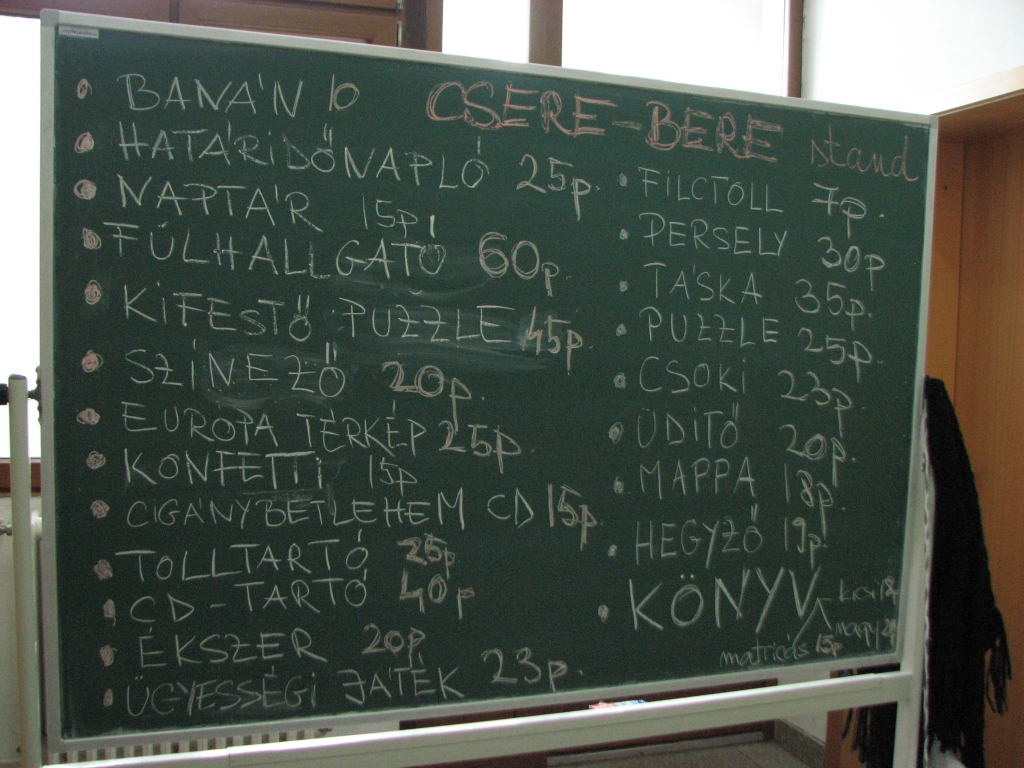 CSERE-BERE stand
BANÁN 10
HATÁRiDŐNAPLÓ 25p.
NAPTÁR 15p.
FÜLHALLGATÓ 60p
KiFESTŐ PUZZLE 45p.
SZÍNEZŐ 20p.
EURÓPA TÉRKÉP 25p
KONFETTi 15p
CIGÁNYBETLEHEM CD 15p.
TOLLTARTÓ 25p
CD-TARTÓ 40p
ÉKSZER 20p
ÜGYESSÉGi JÁTÉK 23p.
FILCTOLL 7p.
PERSELY 30p
TÁSKA 35p.
PUZZLE 25p.
CSOKi 23p.
ÜDÍTŐ 20p.
MAPPA 18p.
HEGYZŐ 19p.
KÖNYV
kicsi
nagy
matricás 15p